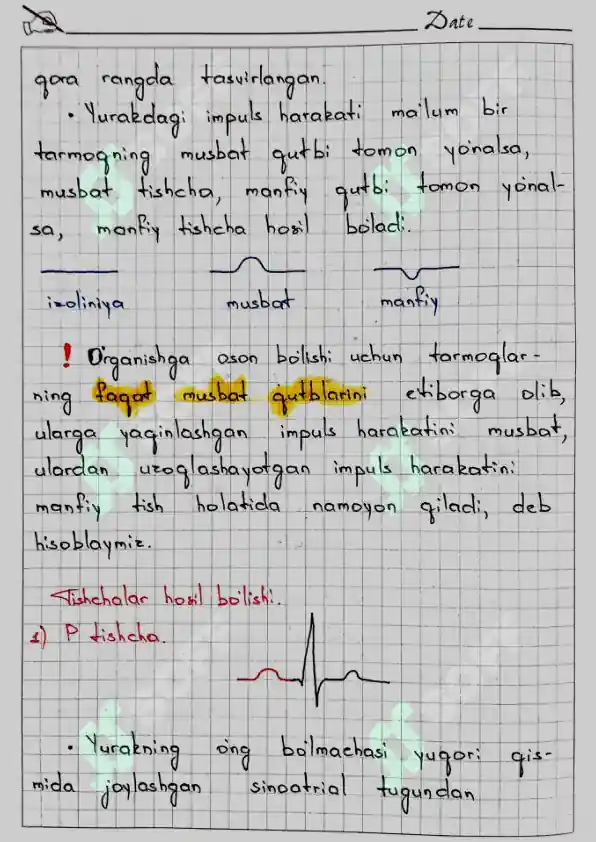 Date
qora rangda tasvirlangan.
• Yurakdagi impuls harakati ma'lum bir
tarmoqning musbat qutbi tomon yo'nalsa,
musbat tishcha, manfiy qutbi tomon yo'nal-
sa, manfiy tishcha hosil bo'ladi.
izoliniya musbat manfiy
! O'rganishga oson bo'lishi uchun tarmoqlar-
ning faqat musbat qutblarini e'tiborga olib,
ularga yaqinlashgan impuls harakatini musbat,
ulardan uzoqlashayotgan impuls harakatini
manfiy tish holatida namoyon qiladi, deb
hisoblaymiz.
Tishchalar hosil bo'lishi.
1) P tishcha.
• Yurakning o'ng bo'lmachasi yuqori qis-
mida joylashgan sinoatrial tugundan